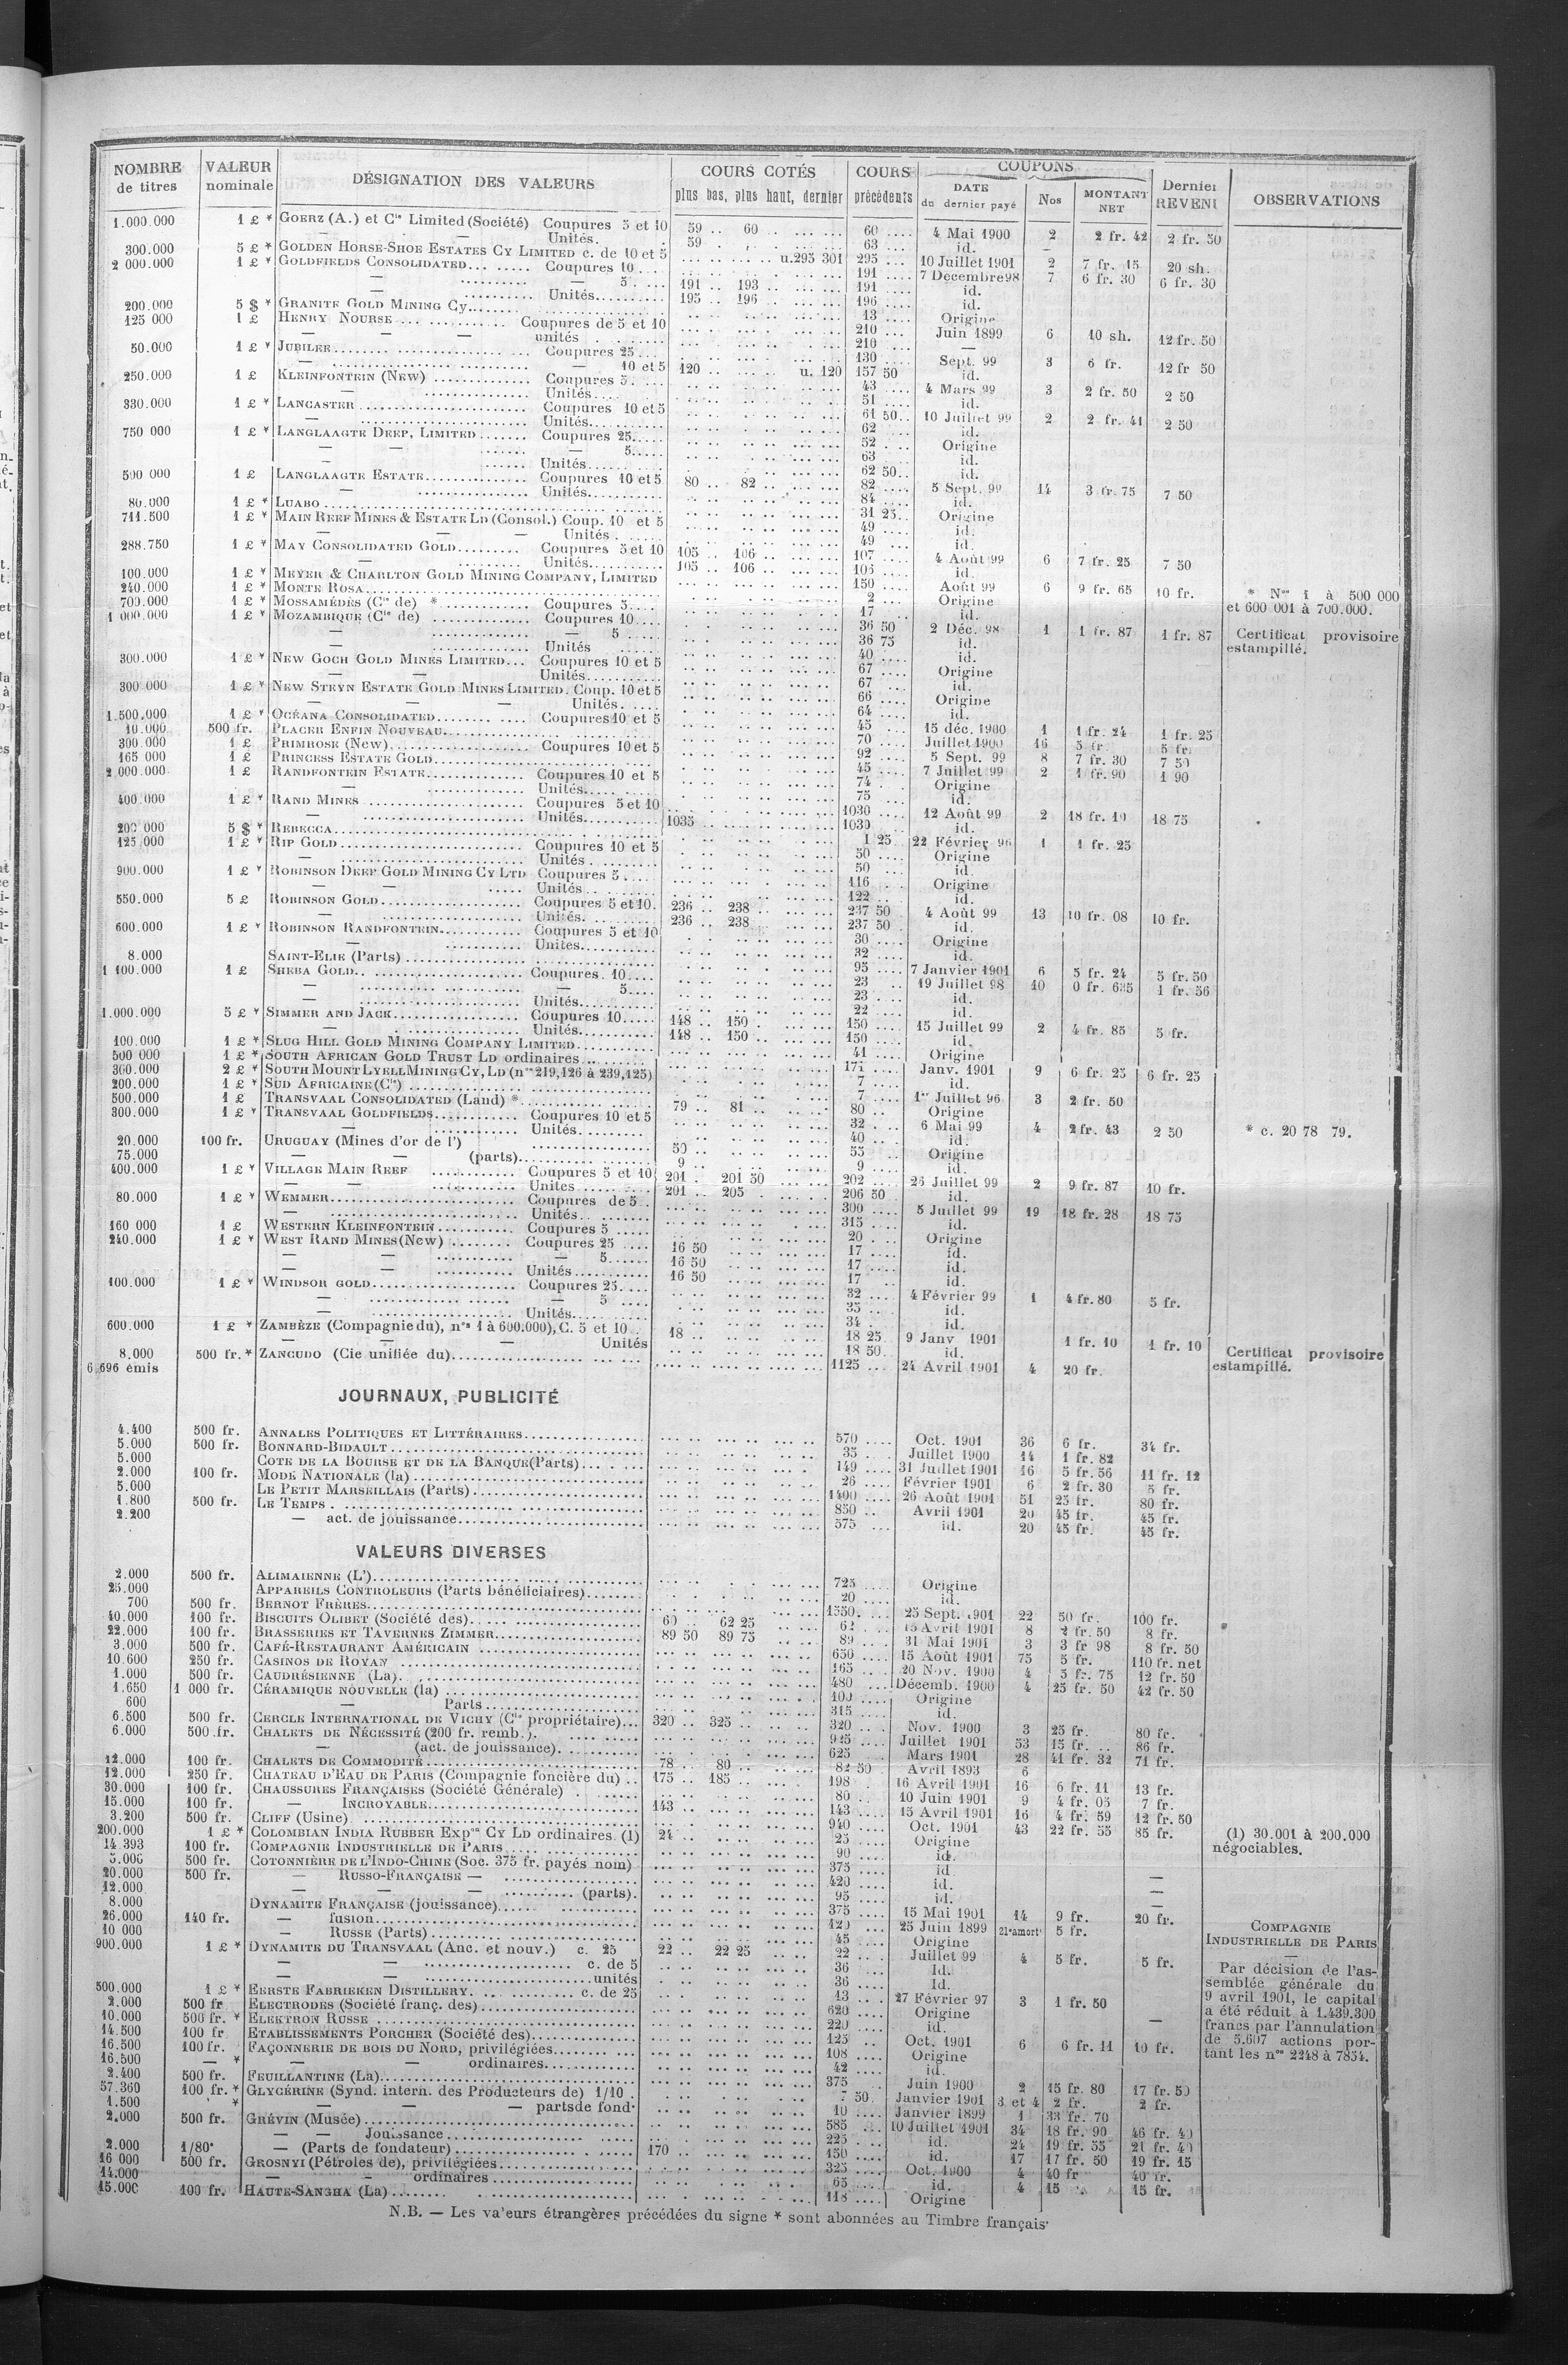 NOMBRE de titres | VALEUR nominale | DÉSIGNATION DES VALEURS | COURS COTÉS plus bas, plus haut, dernier | COURS précédents | COUPONS DATE du dernier payé | Nos | MONTANT NET | Dernier REVENU | OBSERVATIONS
1.000.000 1 £ * GOERZ (A.) et Cie Limited (Société) Coupures 5 et 10 59 .. 60 .. 60 .... 4 Mai 1900 2 2 fr. 42 2 fr. 50
— Unités. 59 . 63 .... id. —
300.000 5 £ * GOLDEN HORSE-SHOE ESTATES CY LIMITED c. de 10 et 5 u.295 301 295 ... 10 Juillet 1901 2 7 fr. 15 20 sh.
2 000.000 1 £ * GOLDFIELDS CONSOLIDATED... ..... Coupures 10 ... 191 .... 7 Décembre 98 7 6 fr. 30 6 fr. 30
— 5. .... 191 .. 193 .. 191 .... id.
— Unités.......... 195 .. 196 .. 196 .... id.
200.000 5 $ * GRANITE GOLD MINING Cy....... 13 .... Origine
125 000 1 £ HENRY NOURSE ... Coupures de 5 et 10 210 .... Juin 1899 6 10 sh. 12 fr. 50
— — unités 210 .... —
50.000 1 £ * JUBILEE........ Coupures 25 ... 130 .... Sept. 99 3 6 fr. 12 fr 50
— 10 et 5 120 .. u. 120 157 50 id.
250.000 1 £ KLEINFONTEIN (NEW) .............. Coupures 5. ... 43 .... 4 Mars 99 3 2 fr. 50 2 50
— Unités.... 51 .... id.
330.000 1 £ * LANCASTER ....................... Coupures 10 et 5 61 50.. 10 Juillet 99 2 2 fr. 41 2 50
— Unités....... 62 ... id.
750 000 1 £ * LANGLAAGTE DEEP, LIMITED ....... Coupures 25..... 52 .... Origine
— — 5..... 63 ... id.
— Unités........ 62 50.. id.
500 000 1 £ LANGLAAGTE ESTATE............... Coupures 10 et 5 80 .. 82 .. 82 .... 5 Sept. 99 14 3 fr. 75 7 50
— Unités.......... 84 .... id.
80.000 1 £ * LUABO .......... 31 25.. Origine
711.500 1 £ * MAIN REEF MINES & ESTATE LD (Consol.) Coup. 10 et 5 49 ... id.
— — — Unités . 49 ... id.
288.750 1 £ * MAY CONSOLIDATED GOLD......... Coupures 5 et 10 105 .. 106 .. 107 ... 4 Août 99 6 7 fr. 25 7 50
— Unités.......... 105 .. 106 .. id.
100.000 1 £ * MEYER & CHARLTON GOLD MINING COMPANY, LIMITED 150 .... Août 99 6 9 fr. 65 10 fr.
240.000 1 £ * MONTE ROSA........ 2 .... Origine
700.000 1 £ * MOSSAMÉDÈS (Cie de) * ............ Coupures 5..... 17 ... id.
1 000.000 1 £ * MOZAMBIQUE (Cie de) .............. Coupures 10.... 36 50 2 Déc. 98 1 1 fr. 87 1 fr. 87
— 5 ..... 36 75 id.
— Unités 40 .... id.
* Nos 1 à 500 000
et 600 001 à 700.000.
Certificat provisoire
estampillé.
300.000 1 £ * NEW GOCH GOLD MINES LIMITED... Coupures 10 et 5 67 .... Origine
— — Unités........... 67 ... id.
300 000 1 £ * NEW STEYN ESTATE GOLD MINES LIMITED. Coup. 10 et 5 66 .... Origine
— — — Unités. .... 64 .... id.
1.500.000 1 £ * OCÉANA CONSOLIDATED........ .... Coupures 10 et 5 45 .... 15 déc. 1900 1 1 fr. 24 1 fr. 25
10.000 500 fr. PLACER ENFIN NOUVEAU.... 70 .... Juillet 1900 16 5 fr. 5 fr.
300.000 1 £ PRIMROSE (New).................. Coupures 10 et 5 92 ... 5 Sept. 99 8 7 fr. 30 7 50
165 000 1 £ PRINCESS ESTATE GOLD........ 45 .... 7 Juillet 99 2 1 fr. 90 1 90
2.000.000 1 £ RANDFONTEIN ESTATE.............. Coupures 10 et 5 74 ... Origine
— Unités.......... 75 ... id.
400.000 1 £ * RAND MINES ...................... Coupures 5 et 10 1030 .... 12 Août 99 2 18 fr. 10 18 75
— Unités.......... 1035 1030 .... id.
200 000 5 $ * REBECCA........... 1 25 22 Février 96 1 1 fr. 25
125 000 1 £ * RIP GOLD......................... Coupures 10 et 5 50 .... Origine
— Unités . 50 .... id.
900.000 1 £ * ROBINSON DEEP GOLD MINING CY LTD Coupures 5 .... 116 Origine
— — Unités.. 122 ... id.
550.000 5 £ ROBINSON GOLD.................... Coupures 5 et 10. 236 .. 238 .. 237 50 4 Août 99 13 10 fr. 08 10 fr.
— Unités. 236 .. 238 .. 237 50 id.
600.000 1 £ * ROBINSON RANDFONTEIN........... Coupures 5 et 10 30 .... Origine
— Unités........... 32 .... id.
8.000 SAINT-ELIE (Parts) ....... 95 .... 7 Janvier 1901 6 5 fr. 24 5 fr. 50
1 100.000 1 £ SHEBA GOLD.. .................... Coupures. 10.... 23 ... 19 Juillet 98 10 0 fr. 635 1 fr. 56
— 5.... 23 .... id.
— Unités........... 22 .... id.
1.000.000 5 £ * SIMMER AND JACK................. Coupures 10..... 148 .. 150 . 150 .... 15 Juillet 99 2 4 fr. 85 5 fr.
— Unités.......... 148 .. 150 .. 150 .... id.
100.000 1 £ * SLUG HILL GOLD MINING COMPANY LIMITED........... 41 .... Origine
500 000 1 £ * SOUTH AFRICAN GOLD TRUST LD ordinaires... Janv. 1901 9 6 fr. 25 6 fr. 25
300.000 2 £ * SOUTH MOUNT LYELL MINING CY, LD (nos 219,126 à 239,125) 7 .... id.
200.000 1 £ * SUD AFRICAINE (Cie) ........ 7 .... 1er Juillet 96 3 2 fr. 50
500.000 1 £ TRANSVAAL CONSOLIDATED (Land) *........... 79 .. 81 .. 80 .. Origine
300.000 1 £ * TRANSVAAL GOLDFIELDS............ Coupures 10 et 5 32 .... 6 Mai 99 4 2 fr. 43 2 50
— Unités........... 40 ... id.
* c. 20 78 79.
20.000 100 fr. URUGUAY (Mines d'or de l') ........ 50 .. 55 .... Origine
75.000 — — (parts)........ 9 .. 9 .... id.
400.000 1 £ * VILLAGE MAIN REEF ............ Coupures 5 et 10 201 . 201 50 202 ... 26 Juillet 99 2 9 fr. 87 10 fr.
— — Unités ..... 201 .. 205 . 206 50 id.
80.000 1 £ * WEMMER........................... Coupures de 5 .. 300 .... 5 Juillet 99 19 18 fr. 28 18 75
— Unités.. ....... 315 .... id.
160 000 1 £ WESTERN KLEINFONTEIN........... Coupures 5 ..... 20 .... Origine
240.000 1 £ * WEST RAND MINES (New) ........ Coupures 25 .... 16 50 17 .... id.
— — 5...... 16 50 17 .... id.
— — Unités........... 16 50 17 ... id.
100.000 1 £ * WINDSOR GOLD.................... Coupures 25.... 32 ... 4 Février 99 1 4 fr. 80 5 fr.
— 5 .... 35 .. id.
— Unités.. 34 . id.
600.000 1 £ * ZAMBÈZE (Compagnie du), nos 1 à 600.000), C. 5 et 10 .. 18 .. 18 25 9 Janv 1901 1 fr. 10 1 fr. 10
— — — Unités 18 50.. id.
8.000 500 fr. * ZANCUDO (Cie unifiée du)........ 1125 ... 24 Avril 1901 4 20 fr.
6 696 émis
Certificat provisoire
estampillé.
JOURNAUX, PUBLICITÉ
4.400 500 fr. ANNALES POLITIQUES ET LITTÉRAIRES........ 570 .... Oct. 1901 36 6 fr. 34 fr.
5.000 500 fr. BONNARD-BIDAULT ........ 35 ... Juillet 1900 14 1 fr. 82
5.000 COTE DE LA BOURSE ET DE LA BANQUE (Parts)... 149 .... 31 Juillet 1901 16 5 fr. 56 11 fr. 12
2.000 100 fr. MODE NATIONALE (la) ........ 26 .... Février 1901 6 2 fr. 30 5 fr.
5.000 LE PETIT MARSEILLAIS (Parts) ........ 1400 .... 26 Août 1901 51 25 fr. 80 fr.
1.800 500 fr. LE TEMPS . ........ 850 .... Avril 1901 20 45 fr. 45 fr.
2.200 — act. de jouissance........ 575 ... id. 20 45 fr. 45 fr.
VALEURS DIVERSES
2.000 500 fr. ALIMAIENNE (L')........ 725 .... Origine
25.000 APPAREILS CONTROLEURS (Parts bénéficiaires)........ 20 .... id.
700 500 fr. BERNOT FRÈRES........ 1550. 25 Sept. 1901 22 50 fr. 100 fr.
40.000 100 fr. BISCUITS OLIBET (Société des)..... 60 .. 62 25 15 Avril 1901 8 2 fr. 50 8 fr.
22.000 100 fr. BRASSERIES ET TAVERNES ZIMMER........ 89 50 89 75 89 ... 31 Mai 1901 3 3 fr 98 8 fr. 50
3.000 500 fr. CAFÉ-RESTAURANT AMÉRICAIN ........ 650 .... 15 Août 1901 75 5 fr. 110 fr. net
10.600 250 fr. CASINOS DE ROYAN ........ 165 ... 20 Nov. 1900 4 5 fr. 75 12 fr. 50
1.000 500 fr. CAUDRÉSIENNE (La). ........ 480 .... Décemb. 1900 4 25 fr. 50 42 fr. 50
1.650 1 000 fr. CÉRAMIQUE NOUVELLE (la) ........ 100 .... Origine
600 — Parts........ 315 .... id.
6.500 500 fr. CERCLE INTERNATIONAL DE VICHY (Cie propriétaire)... 320 .. 325 .. 320 .. Nov. 1900 3 25 fr. 80 fr.
6.000 500 fr. CHALETS DE NÉCESSITÉ (200 fr. remb.). ........ 925 .... Juillet 1901 53 15 fr. .. 86 fr.
— (act. de jouissance)........ 625 Mars 1901 28 41 fr. 32 71 fr.
12.000 100 fr. CHALETS DE COMMODITÉ ........ 78 .. 80 .. 82 50 Avril 1893 6
12.000 250 fr. CHATEAU D'EAU DE PARIS (Compagnie foncière du) .. 175 .. 185 .. 198 . 16 Avril 1901 16 6 fr. 11 13 fr.
30.000 100 fr. CHAUSSURES FRANÇAISES (Société Générale) ........ 80 .. 10 Juin 1901 9 4 fr. 05 7 fr.
15.000 100 fr. — INCROYABLE........ 143 .. 143 .... 15 Avril 1901 16 4 fr. 59 12 fr. 50
3.200 500 fr. CLIFF (Usine) ........ 940 .... Oct. 1901 43 22 fr. 55 85 fr.
200.000 1 £ * COLOMBIAN INDIA RUBBER Expon CY LD ordinaires. (1) 24 .. 25 .... Origine
14 393 100 fr. COMPAGNIE INDUSTRIELLE DE PARIS ........ 90 .... id.
5.000 500 fr. COTONNIÈRE DE L'INDO-CHINE (Soc. 375 fr. payés nom) 375 .... id
20.000 500 fr. — RUSSO-FRANÇAISE — ........ 420 .... id. —
12.000 — — — ........ (parts). 95 ... id. —
8.000 DYNAMITE FRANÇAISE (jouissance)........ 375 .... 15 Mai 1901 14 9 fr. 20 fr.
26.000 140 fr. — fusion........ 420 ... 25 Juin 1899 21e amort 5 fr.
10 000 — RUSSE (Parts) ........ 45 .... Origine
900.000 1 £ * DYNAMITE DU TRANSVAAL (Anc. et nouv.) c. 25 22 .. 22 25 22 .... Juillet 99 4 5 fr. 5 fr.
— — c. de 5 36 .... Id.
— — unités 36 .... Id.
500.000 1 £ * EERSTE FABRIEKEN DISTILLERY. .. ......... c. de 25 13 .... 27 Février 97 3 1 fr. 50
2.000 500 fr ELECTRODES (Société franç. des) ........ 620 .... Origine
10.000 500 fr. * ELEKTRON RUSSE ........ 220 .... id. —
14.500 100 fr. ETABLISSEMENTS PORCHER (Société des)........ 125 .. Oct. 1901 6 6 fr. 11 10 fr.
16.500 100 fr. FAÇONNERIE DE BOIS DU NORD, privilégiées........ 108 .... Origine
16.500 — * — — ordinaires........ 42 .... id.
2.400 500 fr. FEUILLANTINE (La)........ 375 Juin 1900 2 15 fr. 80 17 fr. 50
57.360 100 fr. * GLYCÉRINE (Synd. intern. des Producteurs de) 1/10 . 7 50. Janvier 1901 3 et 4 2 fr. 2 fr.
1.500 * — — — parts de fond. 10 .... Janvier 1899 1 33 fr. 70
2.000 500 fr. GRÉVIN (Musée) ........ 585 ... 10 Juillet 1901 34 18 fr. 90 46 fr. 40
— — Jouissance ........ 225 . ... id. 24 19 fr. 55 21 fr. 40
2.000 1/80e — (Parts de fondateur) ........ 170 .. 150 .... id. 17 17 fr. 50 19 fr. 15
16 000 500 fr. GROSNYI (Pétroles de), privilégiées ........ 325 .... Oct. 1900 4 40 fr 40 fr.
14.000 — — ordinaires ........ 65 .... id. 4 15 15 fr.
15.000 100 fr. HAUTE-SANGHA (La) ........ 118 .... Origine
(1) 30.001 à 200.000
négociables.
COMPAGNIE
INDUSTRIELLE DE PARIS
—
Par décision de l'as-
semblée générale du
9 avril 1901, le capital
a été réduit à 1.439.300
francs par l'annulation
de 5.607 actions por-
tant les nos 2248 à 7854.
N.B. — Les valeurs étrangères précédées du signe * sont abonnées au Timbre français.